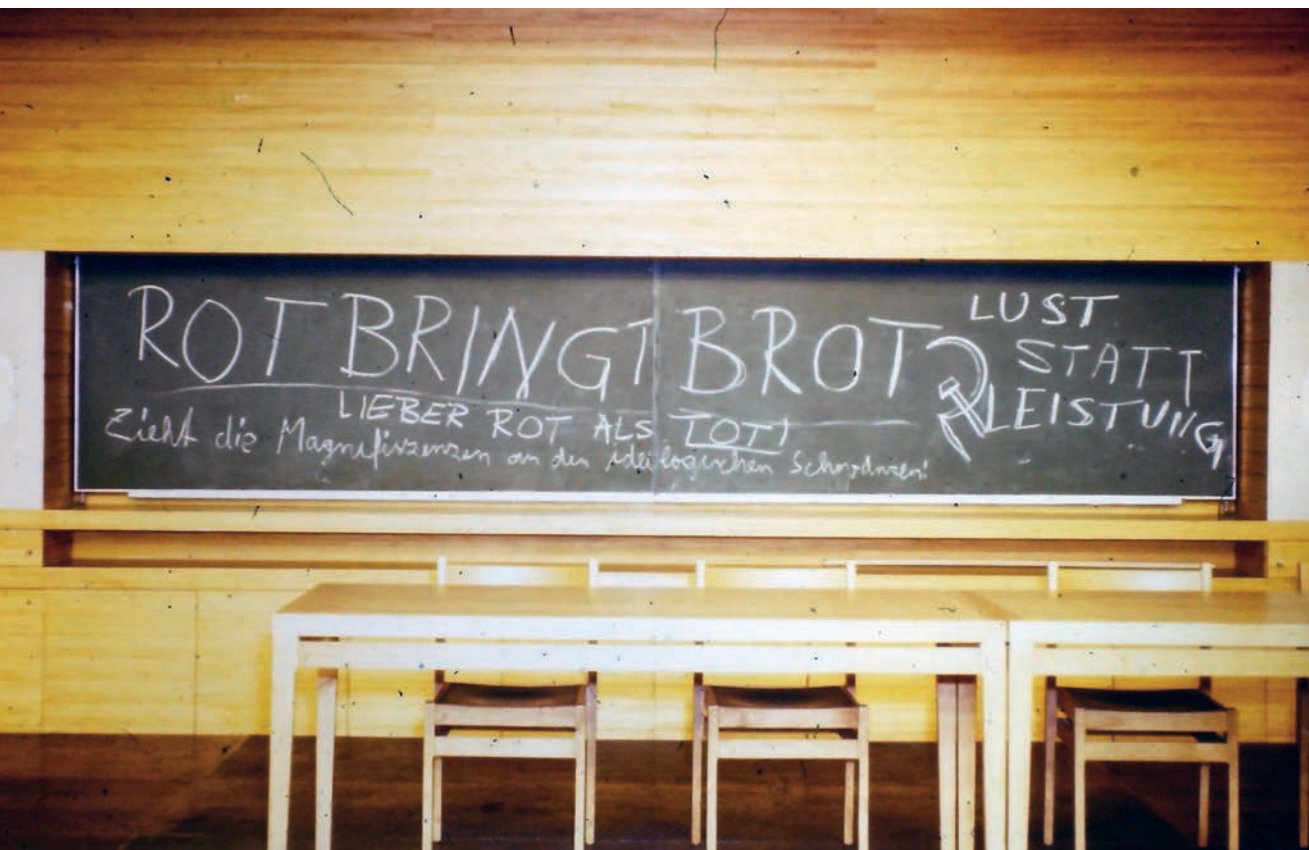 ROT BRINGT BROT
LIEBER ROT ALS TOT!
Zieht die Magnifizenzen an den ideologischen Schwänzen!
LUST
STATT
LEISTUNG